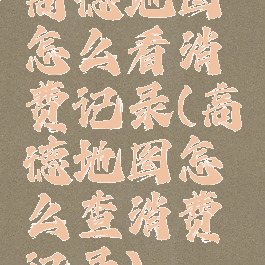 高德地图
怎么看消
费记录(高
德地图怎
么查消费
记录)